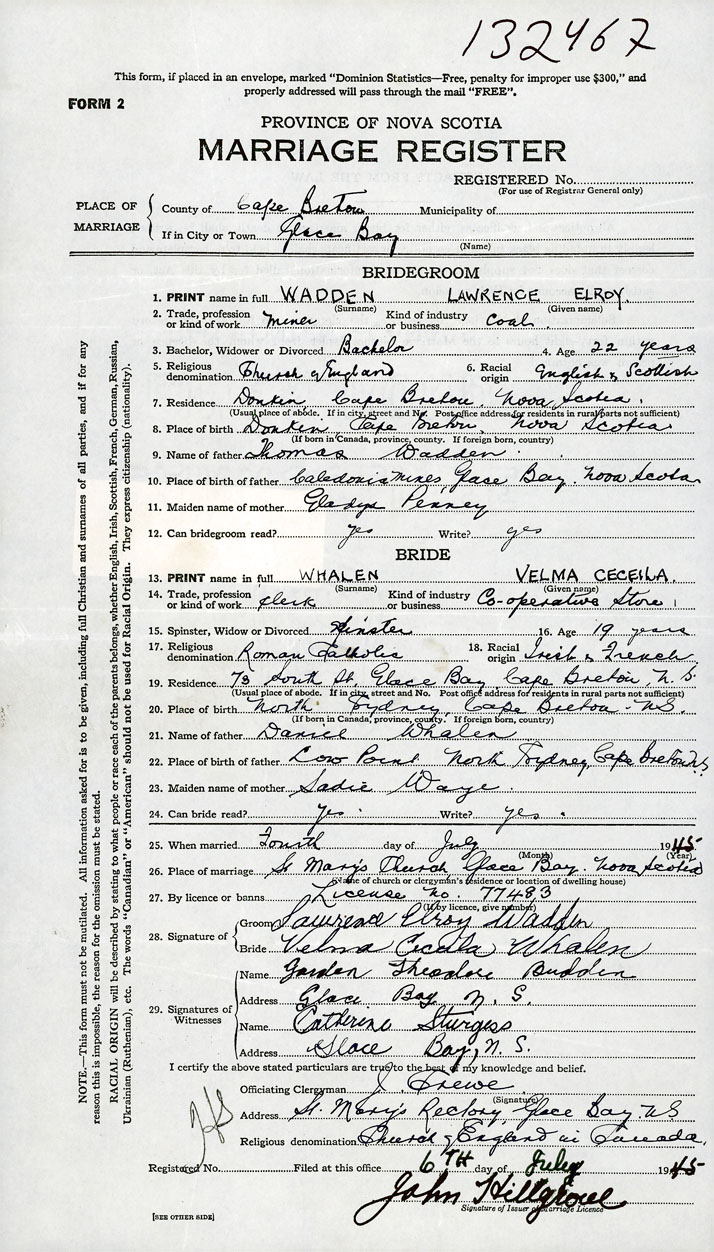 132467
This form, if placed in an envelope, marked “Dominion Statistics—Free, penalty for improper use $300,” and
properly addressed will pass through the mail “FREE”.
FORM 2
PROVINCE OF NOVA SCOTIA
MARRIAGE REGISTER
REGISTERED No.
(For use of Registrar General only)
PLACE OF MARRIAGE
County of Cape Breton Municipality of
If in City or Town Glace Bay
(Name)
BRIDEGROOM
1. PRINT name in full WADDEN LAWRENCE ELROY.
(Surname) (Given name)
2. Trade, profession or kind of work Miner Kind of industry or business Coal.
3. Bachelor, Widower or Divorced Bachelor 4. Age 22 years
5. Religious denomination Church of England 6. Racial origin English & Scottish
7. Residence Donkin, Cape Breton, Nova Scotia.
(Usual place of abode. If in city, street and No. Post office address for residents in rural parts not sufficient)
8. Place of birth Donkin, Cape Breton, Nova Scotia.
(If born in Canada, province, county. If foreign born, country)
9. Name of father Thomas Wadden.
10. Place of birth of father Caledonia Mines, Glace Bay. Nova Scotia.
11. Maiden name of mother Gladys Penney
12. Can bridegroom read? yes Write? yes
BRIDE
13. PRINT name in full WHALEN VELMA CECEILA.
(Surname) (Given name)
14. Trade, profession or kind of work Clerk Kind of industry or business Co-operative Store
15. Spinster, Widow or Divorced Spinster 16. Age 19 years
17. Religious denomination Roman Catholic 18. Racial origin Irish & French
19. Residence 73 South St. Glace Bay, Cape Breton, N. S.
(Usual place of abode. If in city, street and No. Post office address for residents in rural parts not sufficient)
20. Place of birth North Sydney, Cape Breton. N.S.
(If born in Canada, province, county. If foreign born, country)
21. Name of father Daniel Whalen
22. Place of birth of father Low Point North Sydney, Cape Breton N.S.
23. Maiden name of mother Sadie Waye.
24. Can bride read? yes. Write? yes.
25. When married Fourth day of July 1945
(Month) (Year)
26. Place of marriage St Mary's Church, Glace Bay. Nova Scotia
(Name of church or clergyman's residence or location of dwelling house)
27. By licence or banns License No. 77483
(If by licence, give number)
28. Signature of
Groom Lawrence Elroy Wadden
Bride Velma Cecela Whalen
29. Signatures of Witnesses
Name Gordon Theodore Budden
Address Glace Bay N. S.
Name Catherine Sturgess
Address Glace Bay, N. S.
I certify the above stated particulars are true to the best of my knowledge and belief.
Officiating Clergyman J. Crewe
(Signature)
Address St. Mary's Rectory, Glace Bay. N.S
Religious denomination Church of England in Canada.
Registered No. Filed at this office 6TH day of July 1945
John Hillgrove
Signature of Issuer of Marriage Licence
[SEE OTHER SIDE]
NOTE.—This form must not be mutilated. All information asked for is to be given, including full Christian and surnames of all parties, and if for any
reason this is impossible, the reason for the omission must be stated.
RACIAL ORIGIN will be described by stating to what people or race each of the parents belongs, whether English, Irish, Scottish, French, German, Russian,
Ukrainian (Ruthenian), etc. The words “Canadian” or “American” should not be used for Racial Origin. They express citizenship (nationality).